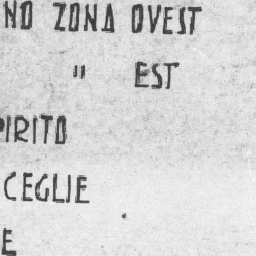 NO ZONA OVEST
" EST
PIRITO
CEGLIE
E